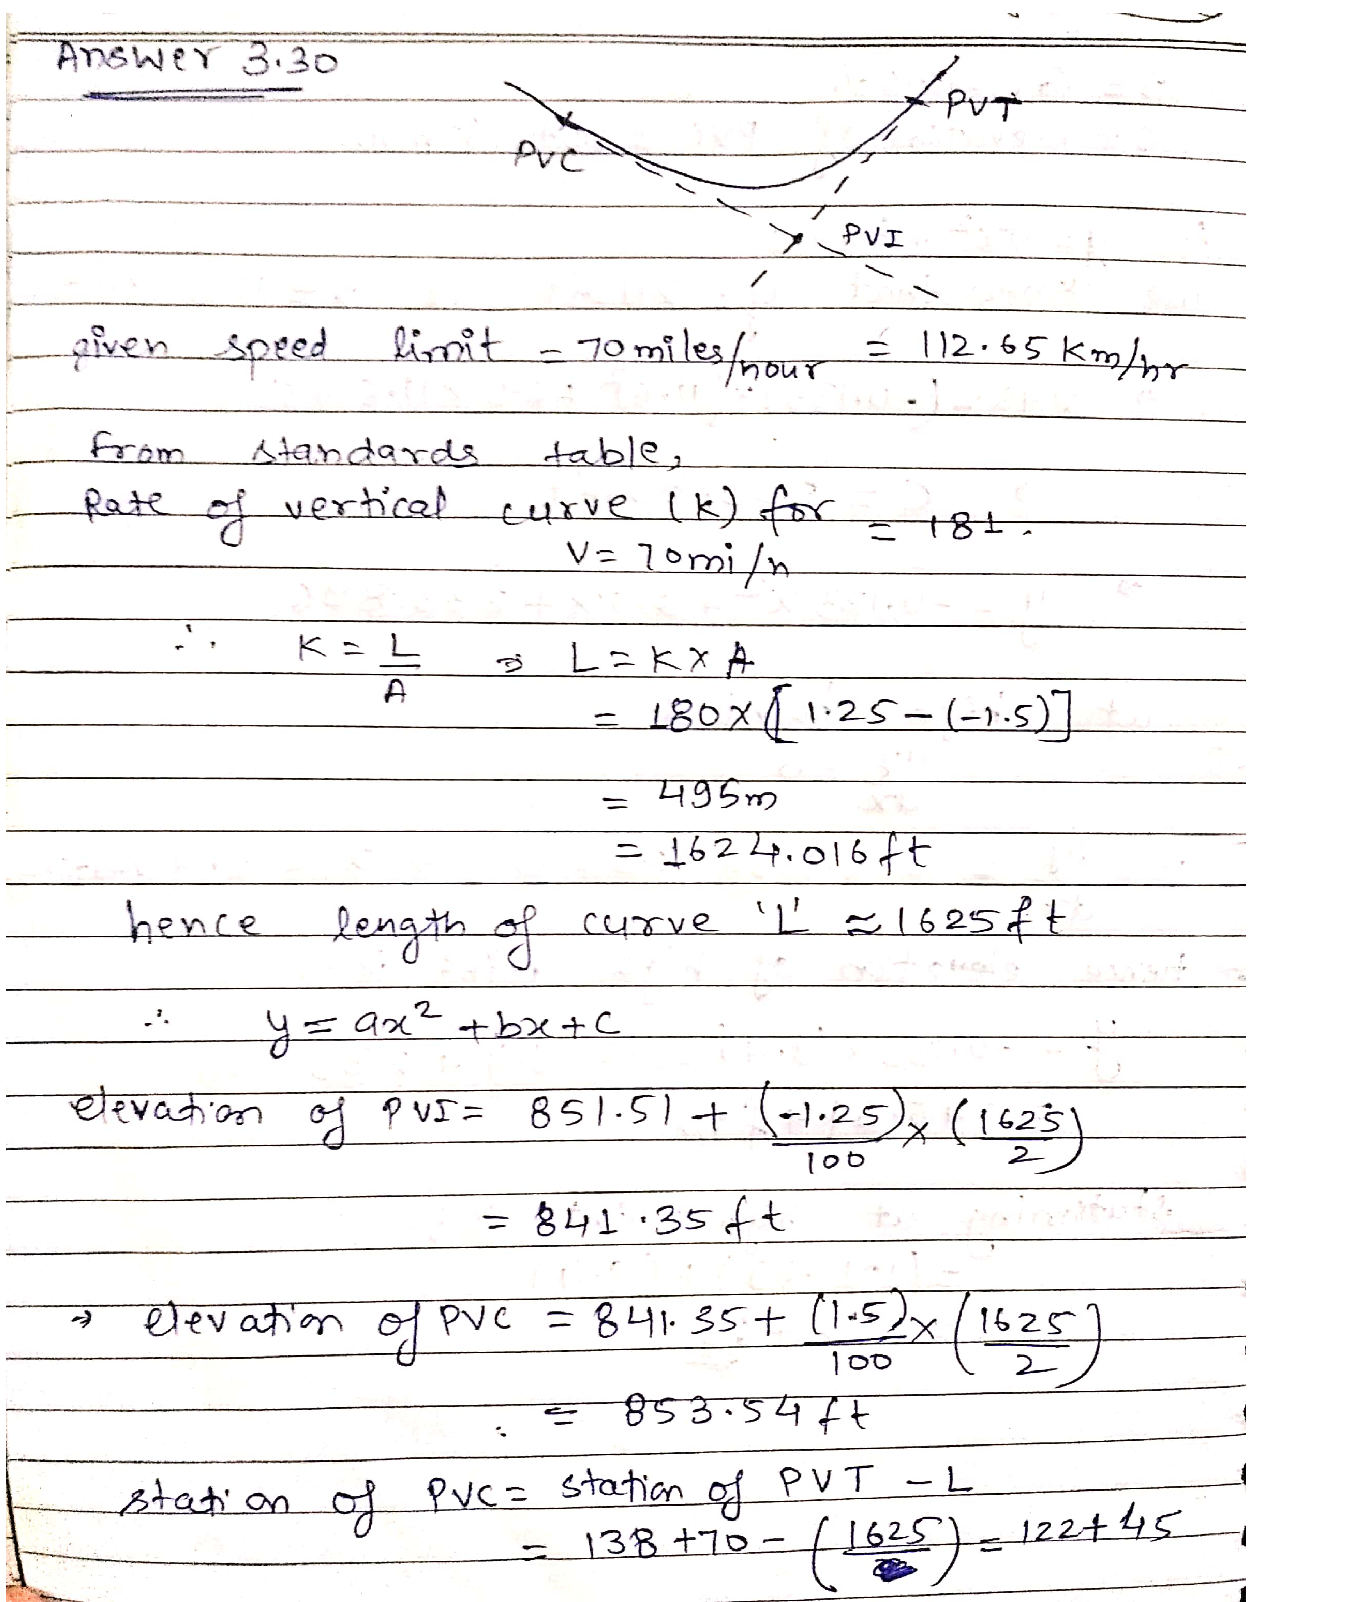 Answer 3.30
PVT
PVC
PVI
given speed limit = 70 miles/hour = 112.65 Km/hr
from standards table,
Rate of vertical curve (K) for = 181.
V = 70mi/h
∴ K = L/A ⇒ L = K x A
= 180 x [1.25 - (-1.5)]
= 495m
= 1624.016 ft
hence length of curve 'L' ≈ 1625 ft
∴ y = ax² + bx + c
elevation of PVI = 851.51 + (-1.25)/100 x (1625/2)
= 841.35 ft
→ elevation of PVC = 841.35 + (1.5)/100 x (1625/2)
= 853.54 ft
station of PVC = station of PVT - L
= 138 + 70 - (1625) = 122 + 45